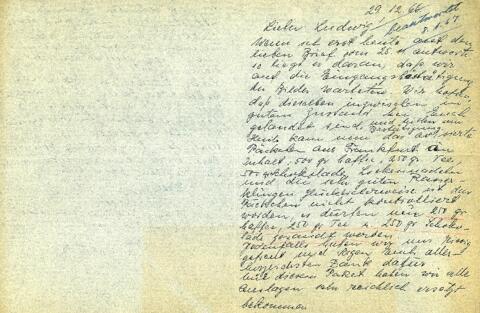 29.12.66
beantwortet
Lieber Ludwig!
Wenn ich erst heute auf den
lieben Brief vom 25. antworte
so liegt es daran, daß wir
auf die Eingangsbestätigung
der Bilder warteten. Wir hoffen,
daß dieselben inzwischen in
gutem Zustand bei Euch
gelandet sind und bitten um Bestätigung
Heute kam nun das avisierte
Päckchen aus Frankfurt an
Inhalt: 500 gr Kaffee, 250 gr Tee,
500 gr Schokolade, Lockennadeln
und die sehr guten Rasier-
klingen. Glücklicherweise ist das
Päckchen nicht kontrolliert
worden, es dürfen nur 250 gr
Kaffee, 250 gr Tee u. 250 gr Schoko-
lade gesandt werden.
Jedenfalls haben wir uns riesig
gefreut und sagen Euch aller-
herzlichsten Dank dafür
Mit diesem Paket haben wir alle
Auslagen sehr reichlich ersetzt
bekommen